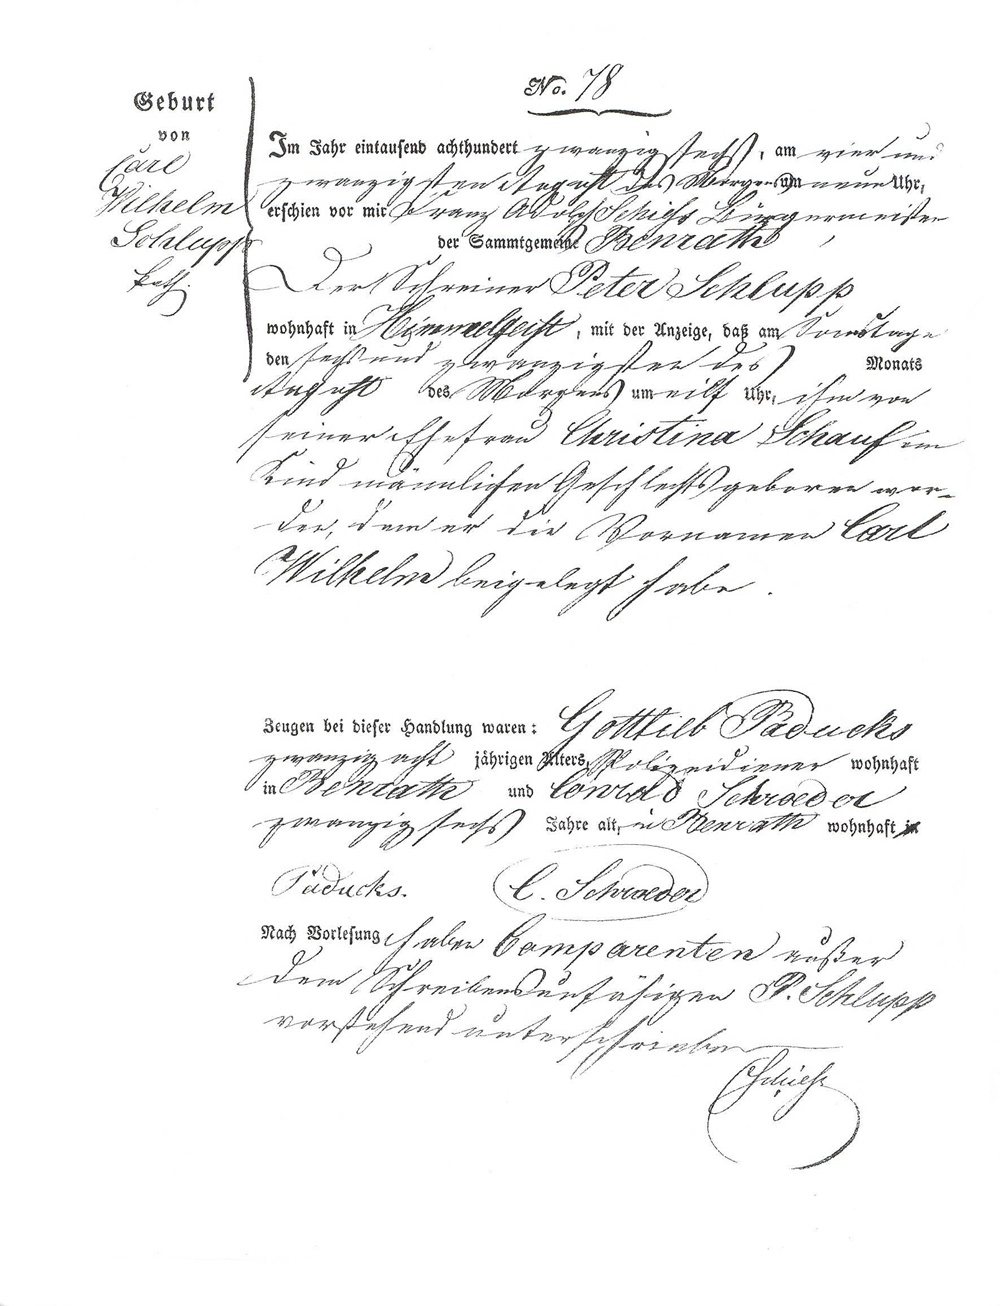 No. 78
Geburt
von
Carl
Wilhelm
Schlupp
kath.
Im Jahr eintausend achthundert zwanzig sechs, am vier und
zwanzigsten August des Morgens um neun Uhr,
erschien vor mir Franz Adolf Schiess Bürgermeister
der Sammtgemeine Benrath
Der Schreiner Peter Schlupp
wohnhaft in Himmelgeist, mit der Anzeige, daß am Samstage
den sechs und zwanzigsten des Monats
August des Morgens um eilf Uhr, ihm von
seiner Ehefrau Christina Schauf ein
Kind männlichen Geschlechts geboren wor-
den, dem er die Vornamen Carl
Wilhelm beigelegt habe.
Zeugen bei dieser Handlung waren: Gottlieb Paducks
zwanzig acht jährigen Alters, Polizeidiener wohnhaft
in Benrath und Conrad Schroeder
zwanzig sechs Jahre alt, in Benrath wohnhaft in
Paducks. C. Schroeder
Nach Vorlesung haben Comparenten außer
dem Schreibensunfähigen P. Schlupp
vorstehend unterschrieben
Schiess